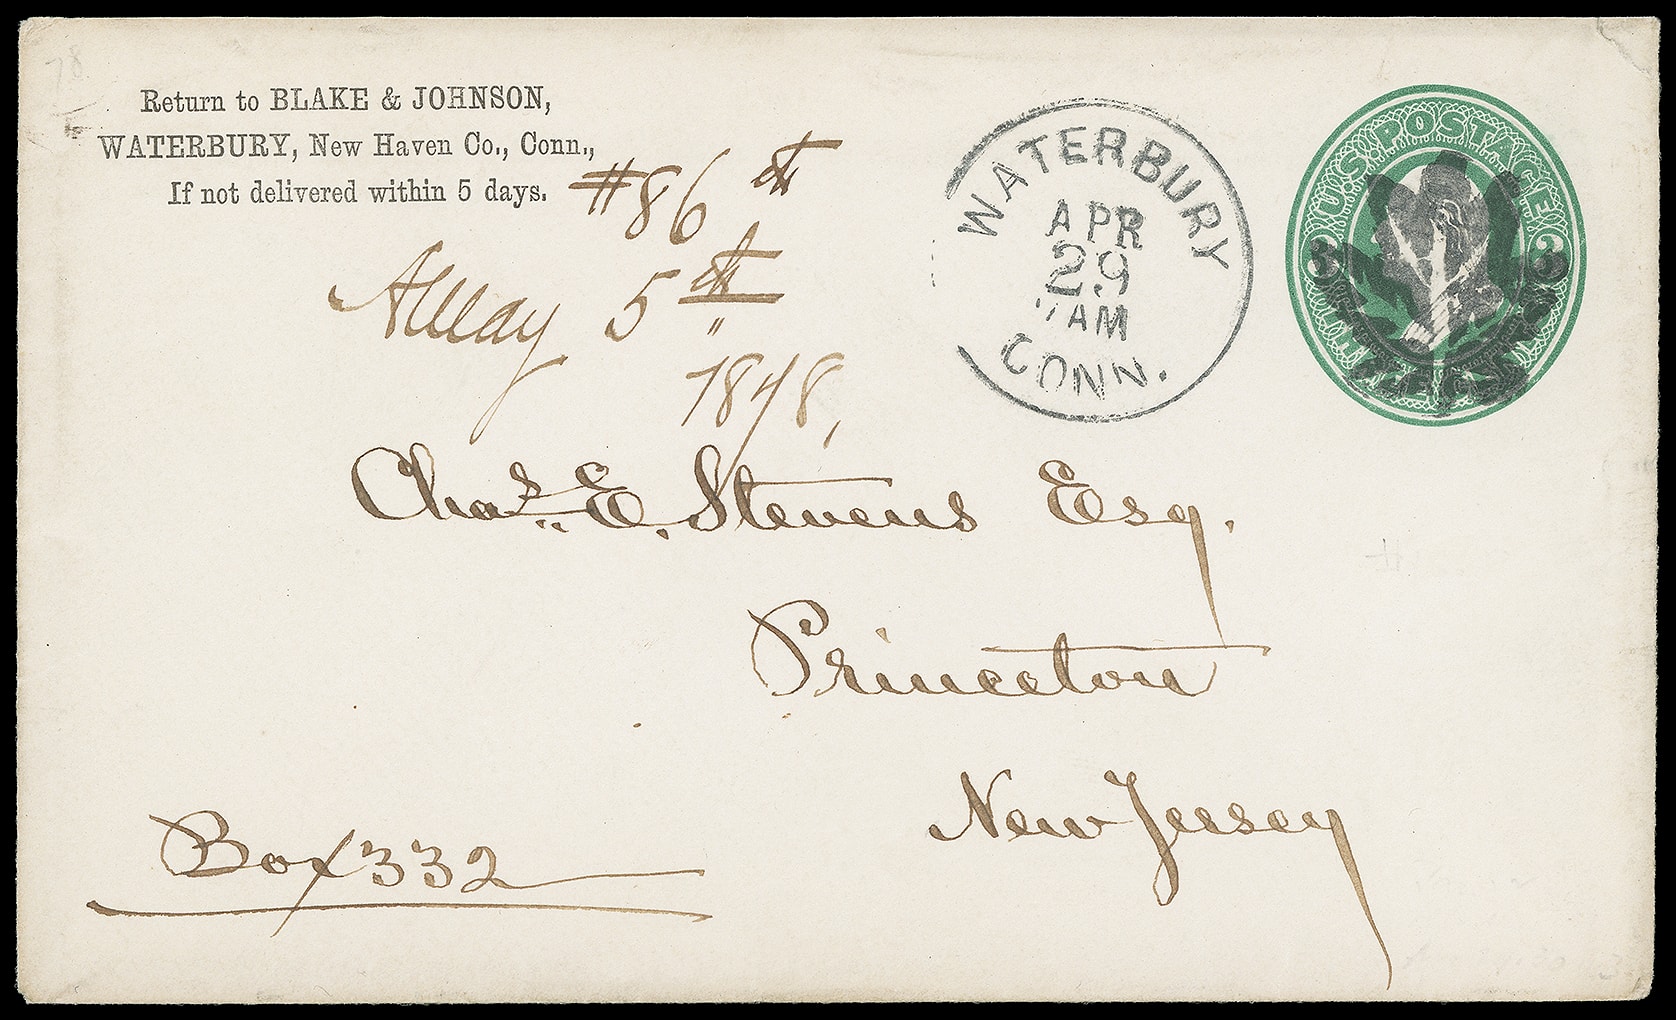 Return to BLAKE & JOHNSON,
WATERBURY, New Haven Co., Conn.,
If not delivered within 5 days.
#86th
May 5th
1878,
WATERBURY
APR
29
AM
CONN.
U.S. POSTAGE
3 3
Chas. E. Stevens Esq.
Princeton
New Jersey
Box 332